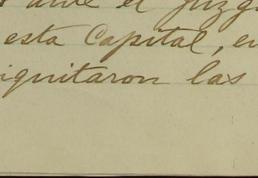 ante el juzg
esta Capital, en
ignitaron las